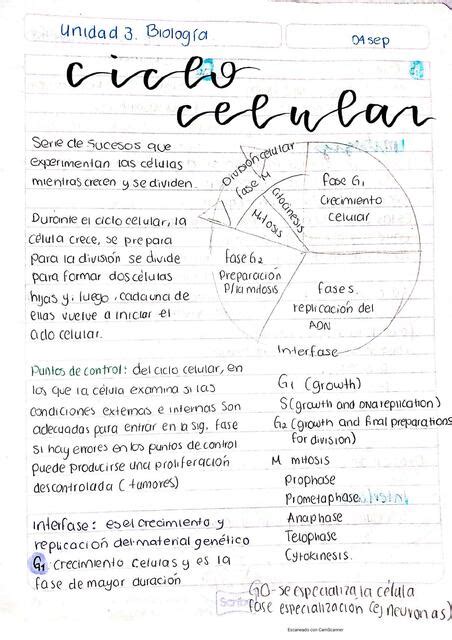 Unidad 3. Biología
04 sep
ciclo
celular
Serie de sucesos que
experimentan las células
mientras crecen y se dividen.
Durante el ciclo celular, la
célula crece, se prepara
para la división se divide
para formar dos células
hijas y, luego, cada una de
ellas vuelve a iniciar el
ciclo celular.
División celular
fase M
Citocinesis
Mitosis
fase G1
Crecimiento
Celular
fase G2
Preparación
P/la mitosis
fase S.
replicación del
ADN
Interfase
Puntos de control: del ciclo celular, en
los que la célula examina si las
condiciones externas e internas son
adecuadas para entrar en la sig. fase
Si hay errores en los puntos de control
puede producirse una proliferación
descontrolada (tumores)
Interfase: es el crecimiento y
replicación del material genético
G1 Crecimiento Celular y es la
fase de mayor duración
G1 (growth)
S (growth and DNA replication)
G2 (growth and final preparations
for division)
M mitosis
Prophase
Prometaphase
Anaphase
Telophase
Cytokinesis.
G0-se especializa la célula
fase especialización (ej neuronas)
Escaneado con CamScanner